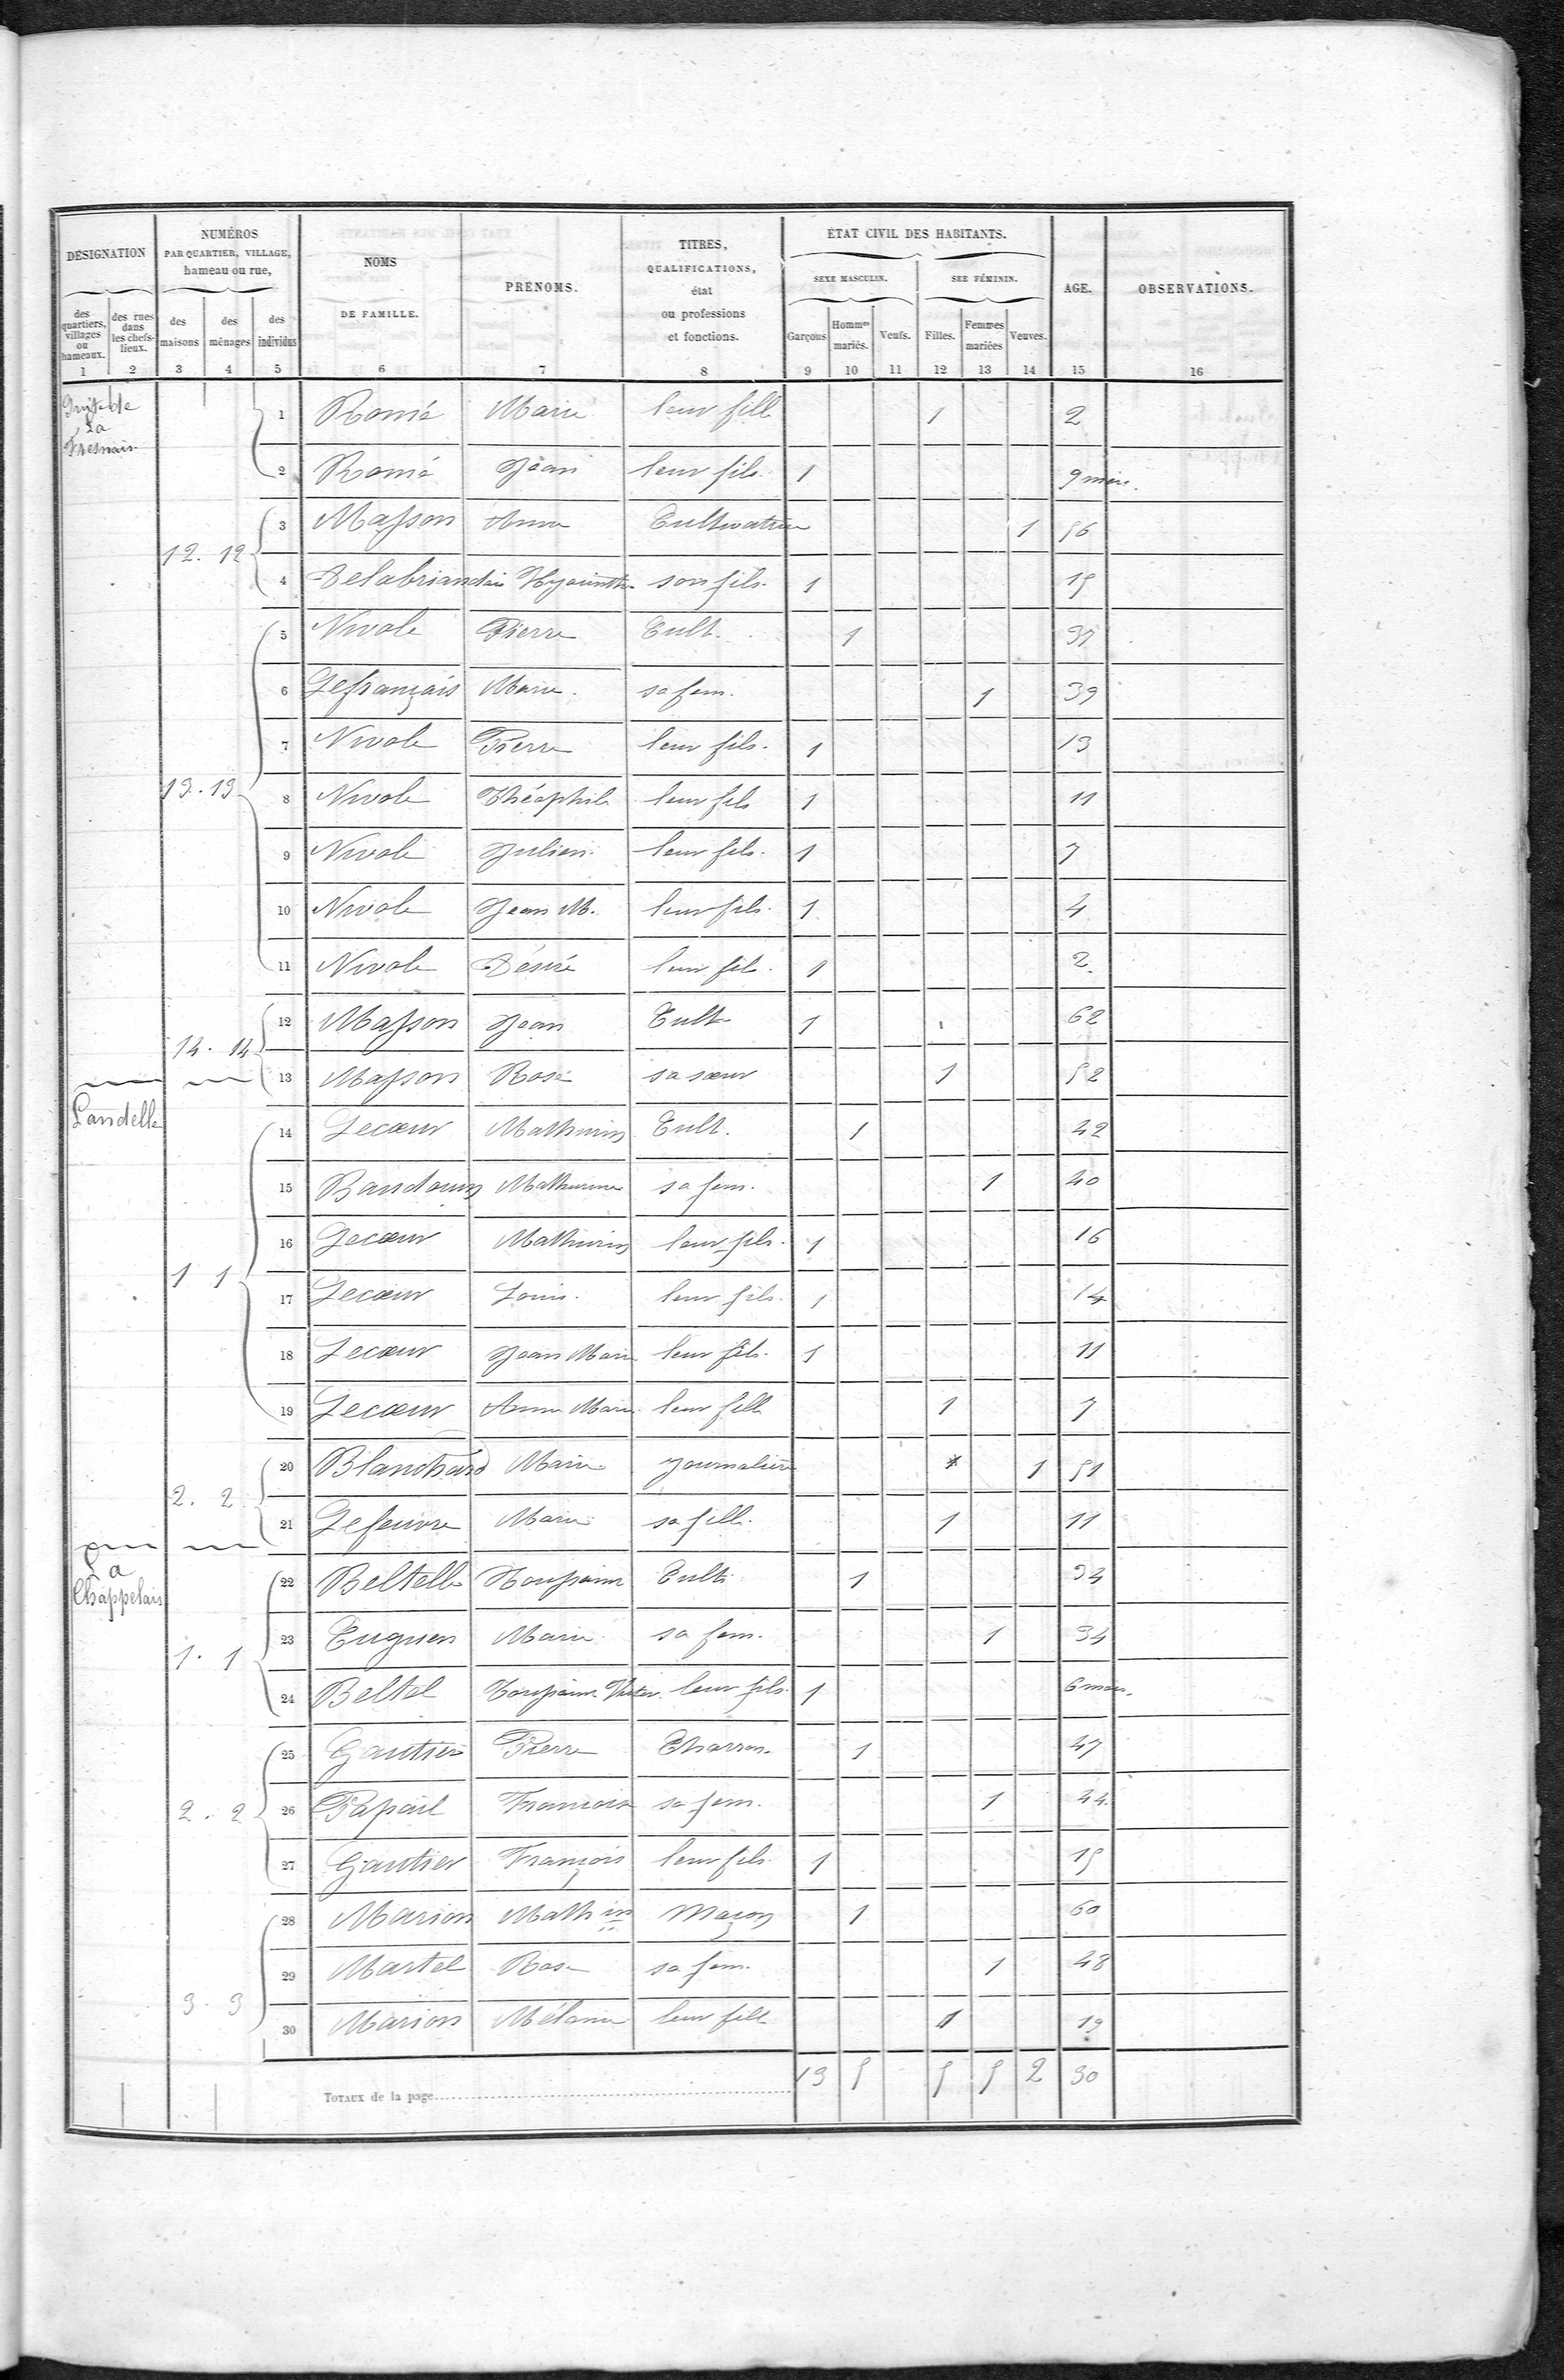 DÉSIGNATION
NUMÉROS PAR QUARTIER, VILLAGE, hameau ou rue,
NOMS DE FAMILLE.
PRÉNOMS.
TITRES, QUALIFICATIONS, état ou professions et fonctions.
ÉTAT CIVIL DES HABITANTS.
SEXE MASCULIN.
SEE FÉMININ.
AGE.
OBSERVATIONS.
des quartiers, villages ou hameaux.
des rues dans les chefs-lieux.
des maisons
des ménages
des individus
Garçons
Hommes mariés.
Veufs.
Filles.
Femmes mariées
Veuves.
1 2 3 4 5 6 7 8 9 10 11 12 13 14 15 16
Suite de La Fresnais
1 Romé Marie leur fille 1 2
2 Romé Jean leur fils 1 9 mois.
12. 12
3 Masson Anne Cultivatrice 1 56
4 Delabriandais Hyacinthe son fils. 1 15
13. 13
5 Nivole Pierre Cult. 1 37
6 Lefrançais Marie. sa fem. 1 39
7 Nivole Pierre leur fils. 1 13
8 Nivole Théophile leur fils 1 11
9 Nivole Julien leur fils. 1 7
10 Nivole Jean M. leur fils. 1 4
11 Nivole Désiré leur fils. 1 2
14. 14
12 Masson Jean Cult 1 62
13 Masson Rose sa sœur 1 52
Landelle
1 1
14 Lecœur Mathurin Cult. 1 42
15 Baudouin Mathurine sa fem. 1 40
16 Lecœur Mathurin leur fils. 1 16
17 Lecœur Louis. leur fils. 1 14
18 Lecœur Jean Marie leur fils. 1 11
19 Lecœur Anne Marie leur fille 1 7
2. 2
20 Blanchard Marie Journalière 1 51
21 Lefeuvre Marie sa fille. 1 11
La Chappelais
1. 1
22 Beltelle Toussaint Cult. 1 34
23 Euguen Marie sa fem. 1 34
24 Beltel Toussaint Victor. leur fils. 1 6 mois.
2. 2
25 Gautier Pierre Charron. 1 47
26 Papail Françoise sa fem. 1 44
27 Gautier François leur fils. 1 15
3. 3
28 Marion Mathin Maçon 1 60
29 Martel Rose sa fem. 1 48
30 Marion Mélanie leur fille 1 19
TOTAUX de la page 13 5 5 5 2 30